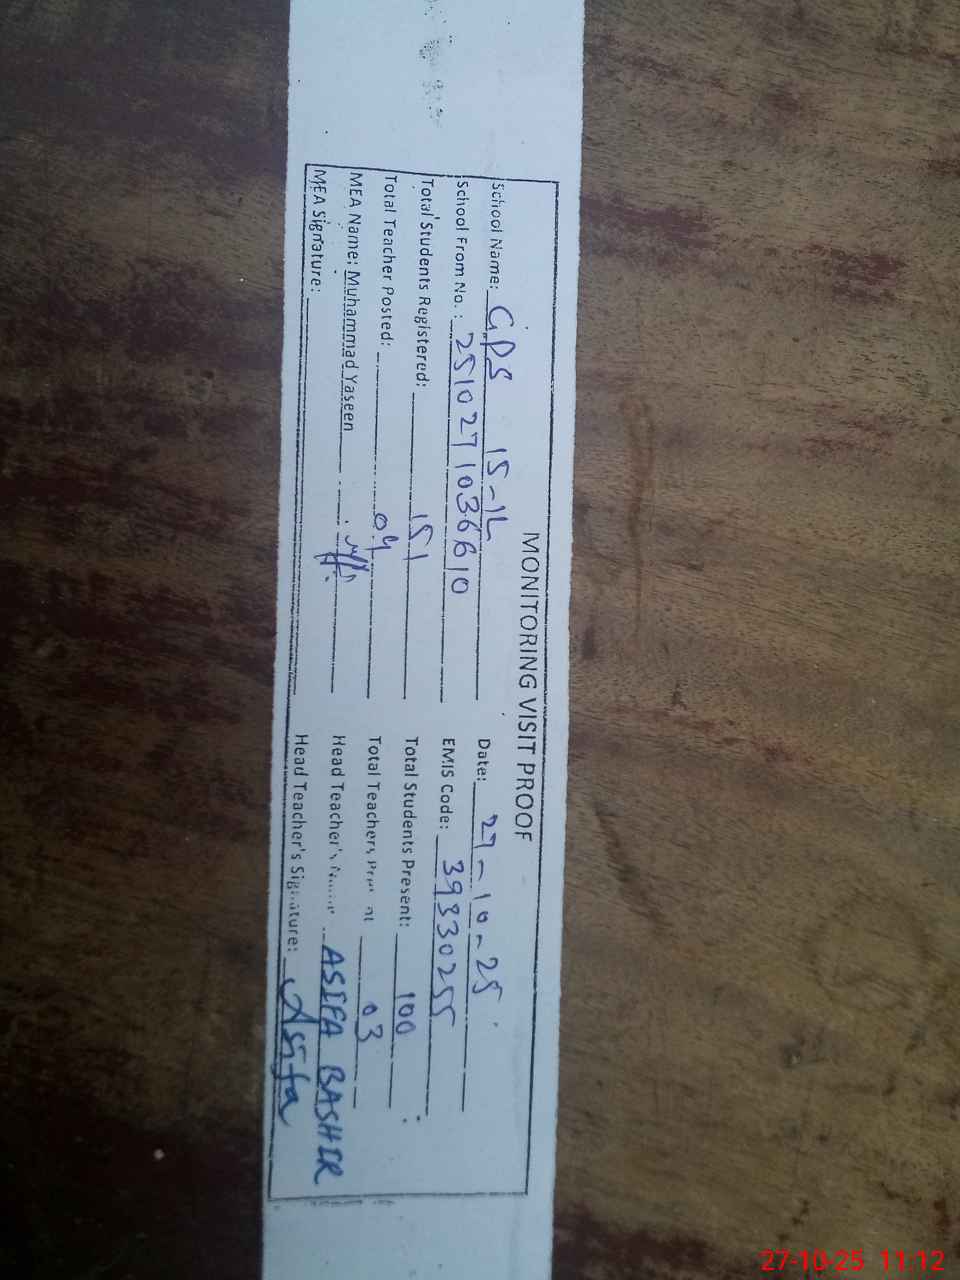 MONITORING VISIT PROOF
School Name: GPS 15-1L Date: 27-10-25
School From No.: 2510271036610 EMIS Code: 39330255
Total Students Registered: 151 Total Students Present: 100
Total Teacher Posted: 04 Total Teachers 03
MEA Name: Muhammad Yaseen Head Teacher's ASIFA BASHIR
MEA Signature: Head Teacher's Signature: Asifa
27-10-25 11:12